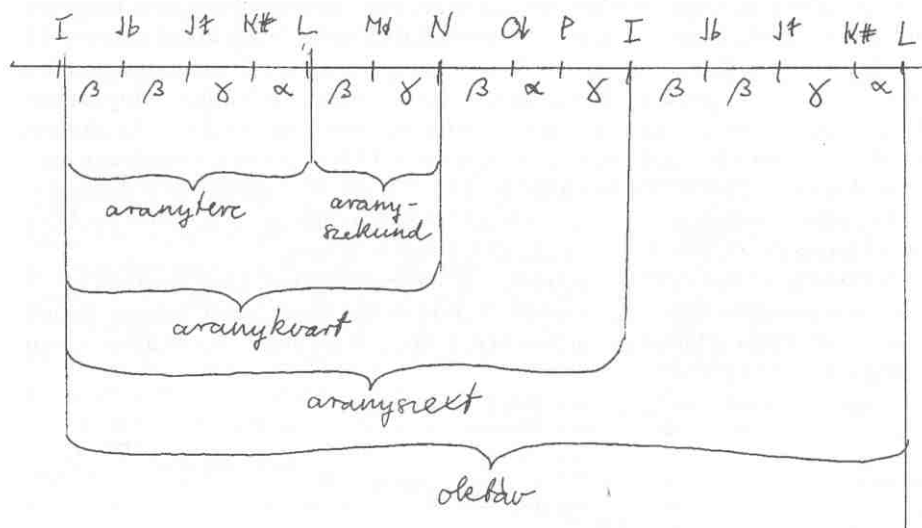 I Jb J♯ K# L Md N Ob P I Jb J♯ K# L
β β γ α β γ β α γ β β γ α
aranyterc arany-
szekund
aranykvart
aranyszext
oktáv